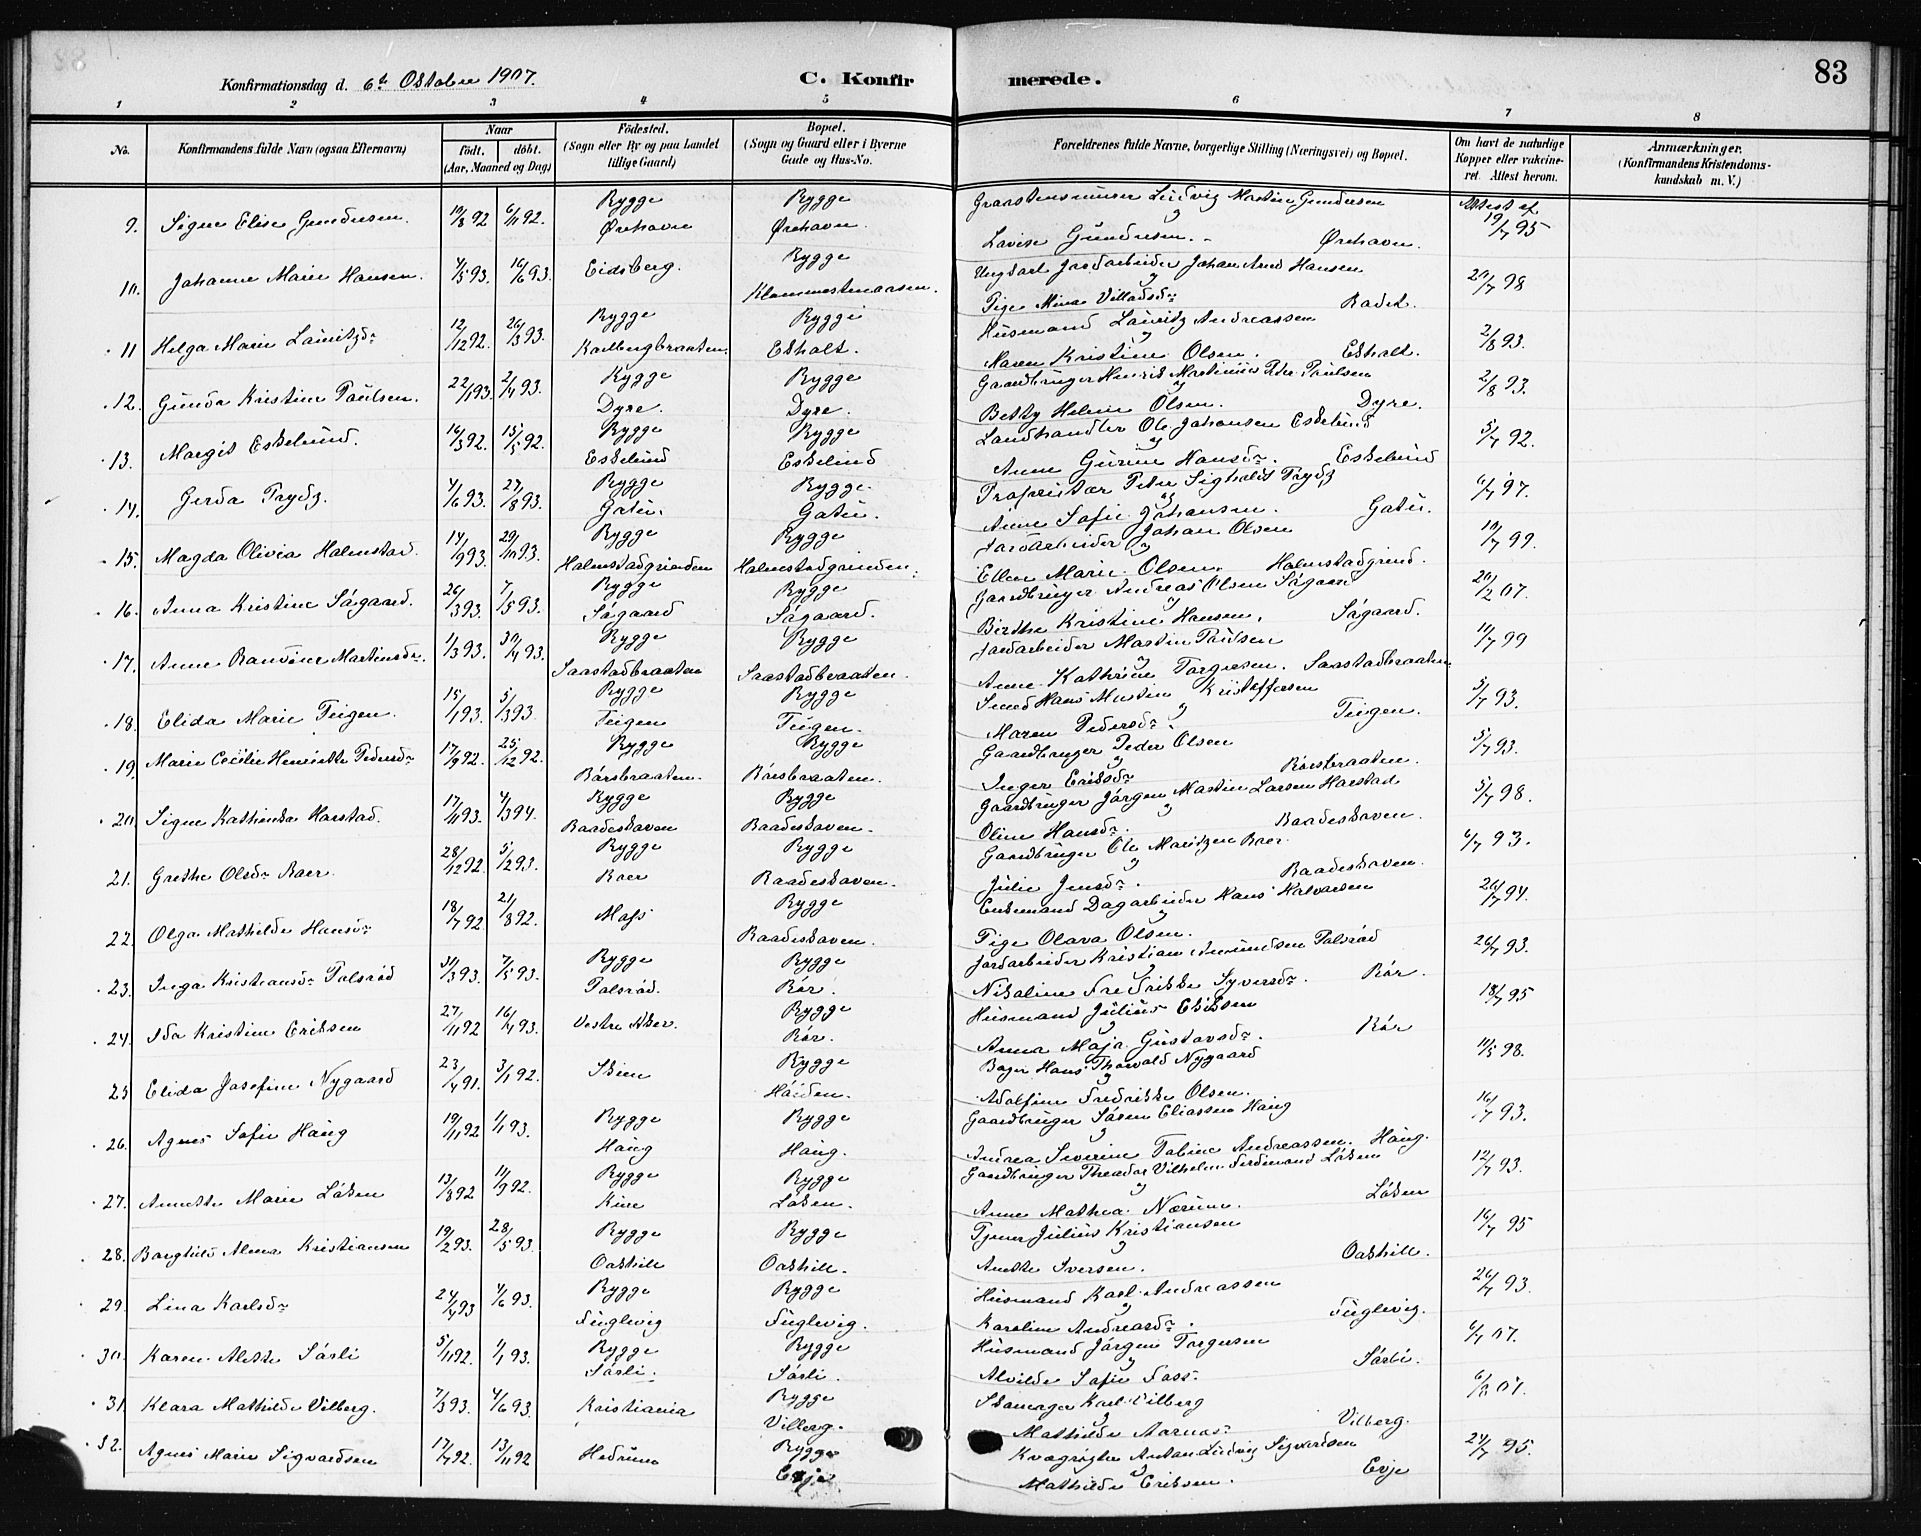 Konfirmationsdag d. 6te Oktober 1907.
C. Konfirmerede.
83
1 2 3 4 5 6 7 8
No.
Konfirmandens fulde Navn (ogsaa Efternavn)
Naar
født. døbt.
(Aar, Maaned og Dag)
Födested.
(Sogn eller By og paa Landet
tillige Gaard)
Bopæl.
(Sogn og Gaard eller i Byerne
Gade og Hus-No.
Forældrenes fulde Navne, borgerlige Stilling (Næringsvei) og Bopæl.
Om havt de naturlige
Kopper eller vakcine-
ret. Attest herom.
Anmærkninger.
(Konfirmandens Kristendoms-
kundskab m. V.)
9. Signe Elise Gundersen. 19/8 92 6/11 92. Rygge Ørehavn Rygge Ørehavn. Graastensminer Ludvig Martin Gundersen
og Lovise Gundersen. Ørehavn. Attest af 19/7 95
10. Johanne Marie Hansen. 4/5 93. 16/6 93. Eidsberg. Rygge Klommestenaasen. Ungkarl Jordarbeider Johan Arnd Hansen
og Pige Mina Villadsdr Radet. 20/7 98
11 Helga Marie Lauritzdr 12/12 92. 26/3 93. Rygge Karlbergbraaten. Rygge Eskolt. Husmand Lauritz Andreassen
og Maren Kristine Olsen. Eskolt. 2/8 93.
12. Gunda Kristine Paulsen. 22/1 93. 2/4 93. Rygge Dyre. Rygge Dyre. Gaardbruger Henrik Martinius Peder Paulsen
og Betzy Helene Olsen. Dyre. 2/8 93.
13. Margit Eskelund. 16/3 92. 15/5 92. Rygge Eskelund Rygge Eskelund Landhandler Ole Johansen Eskelund
og Anne Gurine Hansdr. Eskelund 5/7 92.
14. Gerda Trydz. 4/6 93. 27/8 93. Rygge Gatu. Rygge. Gatu. Proprietær Peter Sigholdt Trydz
og Anne Sofie Johansen. Gatu. 6/7 97.
15. Magda Olivia Halmstad. 14/9 93. 29/10 93. Rygge Halmstadgrinden Rygge Halmstadgrinden. Jordarbeider Johan Olsen
og Ellen Marie Olsen. Halmstadgrind. 10/7 99.
16. Anna Kristine Sögaard. 26/3 93. 7/5 93. Rygge Sögaard Rygge Sögaard. Gaardbruger Andreas Olsen Sögaard
og Birthe Kristine Hansen. Sögaard. 20/2 07.
17. Anne Randine Martinsdr. 1/3 93. 30/4 93. Rygge Saastadbraaten Rygge Saastadbraaten. Jordarbeider Martin Paulsen
og Anne Kathrine Torgersen. Saastadbraaten 11/7 99
18. Elida Marie Teigen. 15/1 93. 5/3 93. Rygge Teigen Rygge Teigen. Smed Hans Martin Kristoffersen
og Maren Pedersdr. Teigen. 5/7 93.
19. Marie Cecilie Henriette Pedersdr 17/9 92. 25/12 92. Rygge Rörsbraaten. Rygge Rörsbraaten. Gaardbruger Peder Olsen
og Inger Eriksdr Rörsbraaten. 5/7 93.
20. Signe Kathinka Harstad. 17/11 93. 4/3 94. Rygge Raadeskoven Rygge Raadeskoven. Gaardbruger Jörgen Martin Larsen Harstad
og Oline Hansdr. Raadeskoven. 5/7 98.
21. Grethe Olsdr Raer. 28/12 92. 5/2 93. Rygge Raer Rygge Raadeskoven. Gaardbruger Ole Mauritzen Raer.
og Julie Jensdr. Raadeskoven. 6/7 93.
22. Olga Mathilde Hansdr 18/7 92 21/8 92. Moss Rygge Raadeskoven. Enkemand Dagarbeider Hans Halvorsen
og Pige Olava Olsen. 26/7 94.
23. Inga Kristiansdr Talsröd 30/3 93. 7/5 93. Rygge Talsröd. Rygge Rör. Jordarbeider Kristian Amundsen Talsröd
og Nikoline Fredrikke Syversdr. Rör. 26/7 93.
24. Ida Kristine Eriksen 27/11 92 16/4 93. Vestre Aker. Rygge Rör. Husmand Julius Eriksen
og Anna Maja Gustavsdr. Rör 18/7 95
25 Elida Josefine Nygaard 23/4 91. 3/1 92. Skien Rygge Höiden. Bager Hans Thorvald Nygaard
og Adolfine Fredrikke Olsen. 11/5 98.
26. Agnes Sofie Haug 19/11 92 1/1 93. Rygge Haug Rygge Haug. Gaardbruger Sören Eliassen Haug
og Andrea Severine Tobine Andreassen. Haug. 16/7 93.
27. Annette Marie Löken 13/8 92 11/9 92. Rygge Kine Rygge Löken. Gaardbruger Theodor Vilhelm Ferdinand Löken
og Anne Mathea Nærum. Löken 12/7 93.
28. Borghild Alma Kristiansen 19/2 93. 28/5 93. Rygge Oakhill Rygge Oakhill. Tjener Julius Kristiansen
og Anette Iversen. Oakhill. 16/7 95
29. Lina Karlsdr 24/4 93 4/6 93. Rygge Fuglevig Rygge Fuglevig. Husmand Karl Andreassen
og Karoline Andreasdr. Fuglevig. 26/7 93.
30. Karen Alette Sörli 5/11 92. 1/1 93. Rygge Sörli. Rygge Sörli. Husmand Jörgen Torgersen
og Alvilde Sofie Foss. Sörli. 6/7 07.
31 Klara Mathilde Vilberg. 7/3 93. 4/6 93. Kristiania Rygge Vilberg. Skomager Karl Vilberg
og Mathilde Aarnes. Vilberg. 6/2 07.
32. Agnes Marie Sigvardsen 17/7 92. 13/11 92 Hedrum Rygge Evje Kvægrögter Anton Ludvig Sigvardsen
og Mathilde Eriksen. Evje 24/7 95.